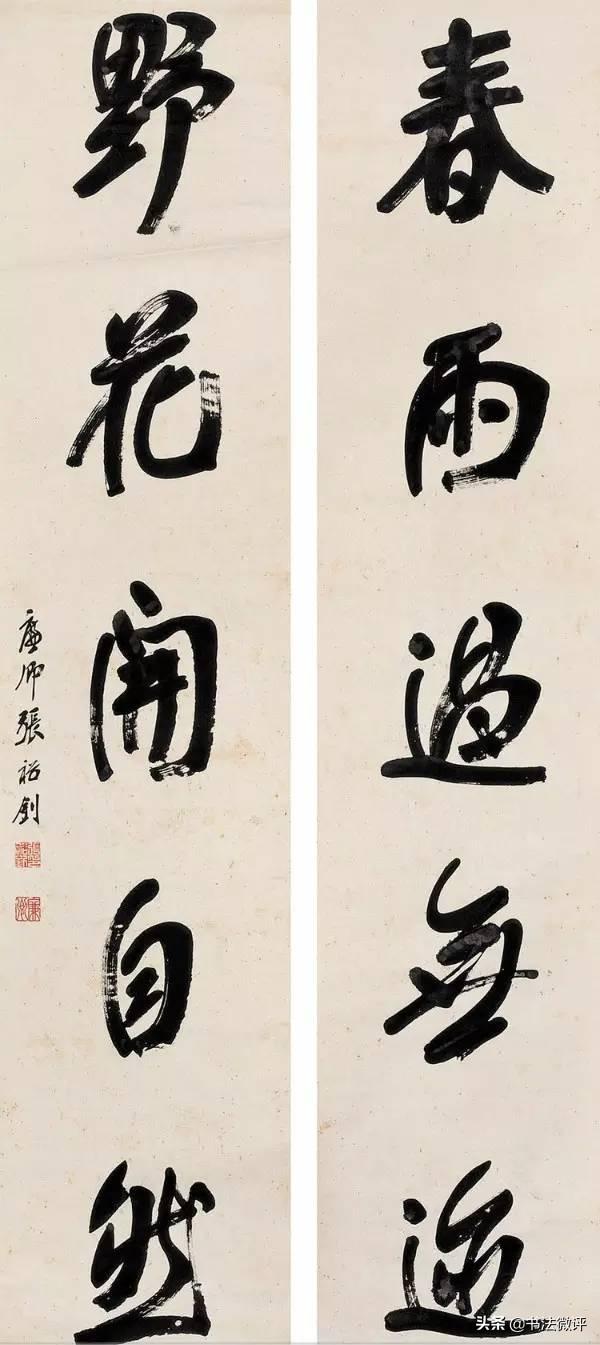 春雨過無迹
野花開自然
廉卿張裕釗
头条 @书法微评